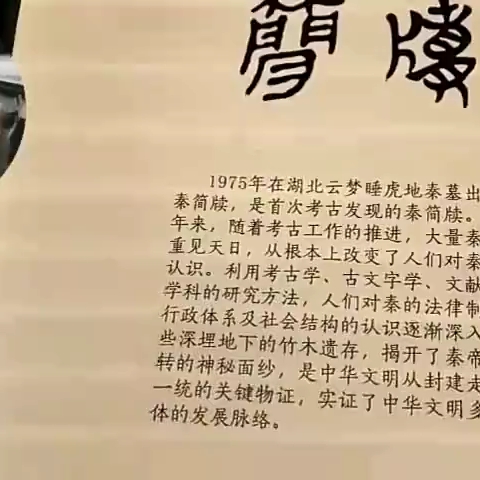 簡牘
1975年在湖北云梦睡虎地秦墓出
秦简牍，是首次考古发现的秦简牍。
年来，随着考古工作的推进，大量秦
重见天日，从根本上改变了人们对秦
认识。利用考古学、古文字学、文献
学科的研究方法，人们对秦的法律制
行政体系及社会结构的认识逐渐深入
些深埋地下的竹木遗存，揭开了秦帝
转的神秘面纱，是中华文明从封建走
一统的关键物证，实证了中华文明多
体的发展脉络。